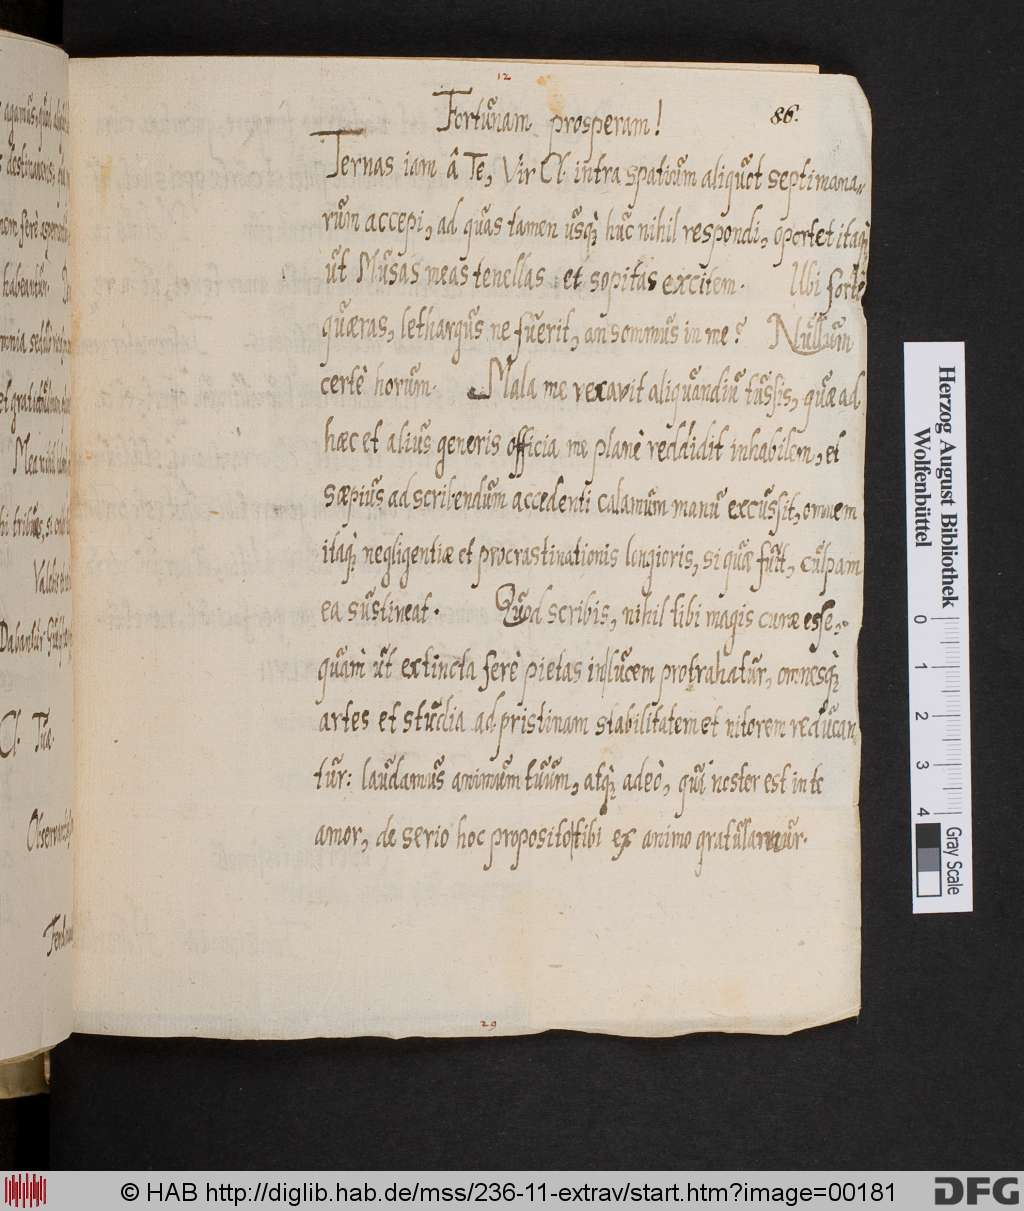 12
86.
Fortunam prosperam!
Ternas iam â Te, Vir Cl. intra spatium aliquot septimana„
rum accepi, ad quas tamen usq; huc nihil respondi, oportet itaq;
ut Musas meas tenellas et sopitas excitem. Ubi fortè
quæras, lethargus ne fuerit, an somnus in me? Nullum
certè horum. Mala me vexavit aliquandiu tussis, quæ ad
hæc et alius generis officia me planè reddidit inhabilem, et
sæpius ad scribendum accedenti calamum manu excussit, omnem
itaq; negligentiæ et procrastinationis longioris, si quæ fuit, culpam
ea sustineat. Quod scribis, nihil tibi magis curæ esse,
quàm ut extincta ferè pietas in lucem protrahatur, omnesq;
artes et studia ad pristinam stabilitatem et nitorem reducan
tur: laudamus animum tuum, atq; adeò, qui noster est in te
amor, de serio hoc proposito tibi ex animo gratulamur.
29
agamus, quod
destinavens,
nem ferè
habeantur.
omnia sedulò
et gratitudinem
Mea nihil
hi tribues, si
Vale
Dabantur
Cl. Tuæ
Observantiss
Ferdinand
Herzog August Bibliothek
Wolfenbüttel
0 1 2 3 4
Gray Scale
© HAB http://diglib.hab.de/mss/236-11-extrav/start.htm?image=00181
DFG